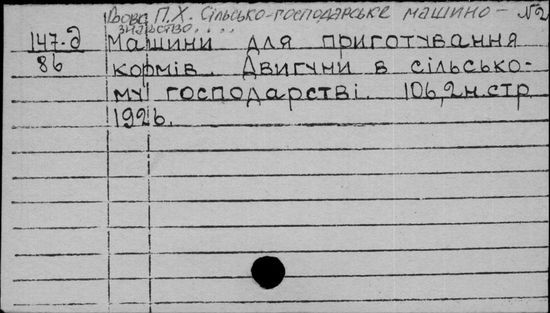 П.Х. Сільсько-господарське машино- №2
знавство....
147-д Машини для приготування
86 кормів. Двигуни в сільсько-
му господарстві. 106,2н.стр
1926.